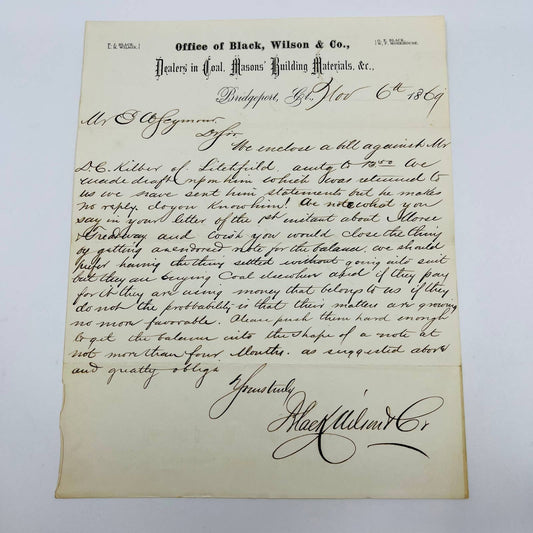 Office of Black, Wilson & Co.,
Dealers in Coal, Masons' Building Materials, &c.,
Bridgeport, Ct., Nov 6th 1869
Mr E W Seymour
Dr Sir
We enclose a bill against Mr
D. C. Kilber of Litchfield, amtg to We
made draft upon him which was returned to
us we have sent him statements but he makes
no reply, do you know him! We note what you
say in your letter of the 1st instant about Morse
& Treadway and wish you would close the thing
by getting an endorsed note for the balance, we should
prefer having the thing settled without going into suit
but they are buying Coal elsewhere and if they pay
for it they are using money that belongs to us if they
do not the probbability is that their matters are growing
no more favorable. Please push them hard enough
to get the balance into the shape of a note at
not more than four Months. as suggested above
and greatly oblige
Yours truly
Black Wilson & Co